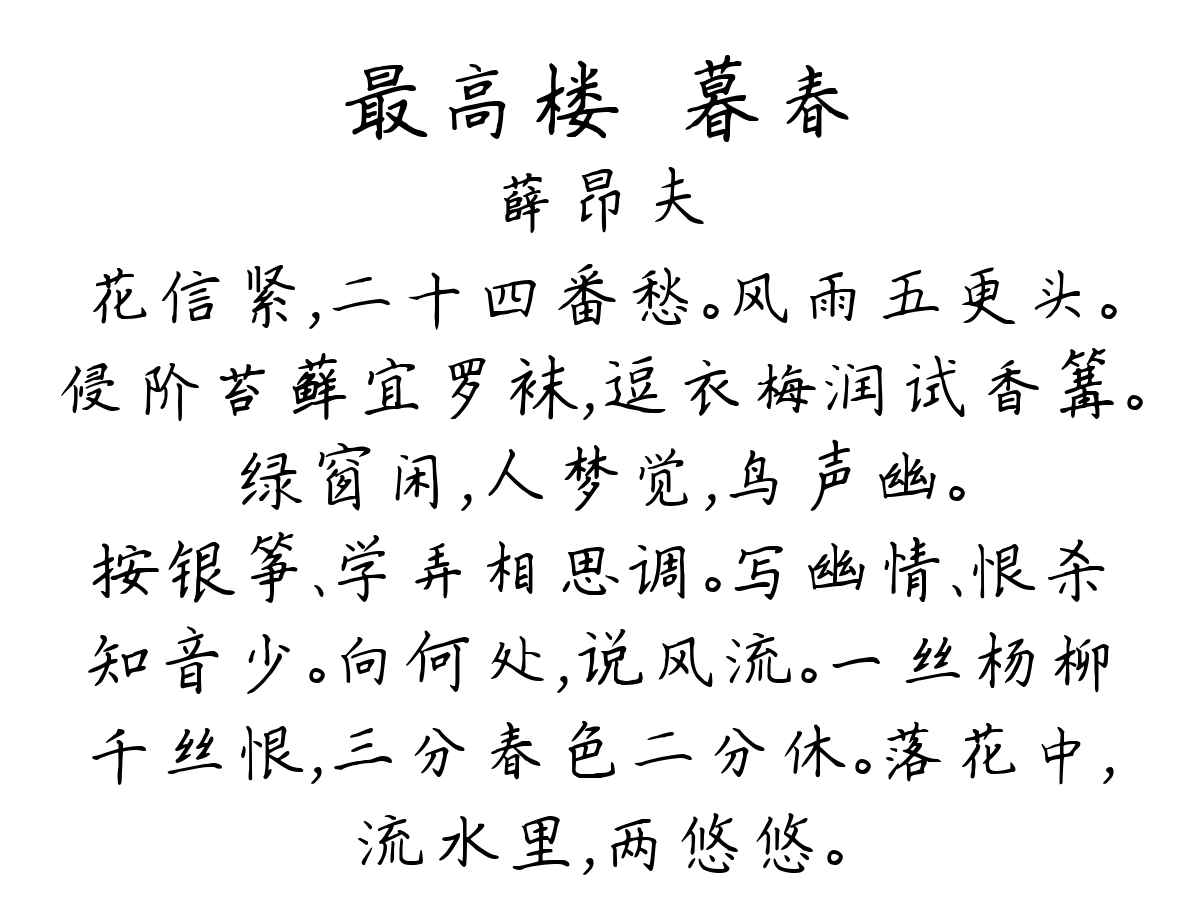 最高楼 暮春
薛昂夫
花信紧,二十四番愁。风雨五更头。
侵阶苔藓宜罗袜,逗衣梅润试香篝。
绿窗闲,人梦觉,鸟声幽。
按银筝、学弄相思调。写幽情、恨杀
知音少。向何处,说风流。一丝杨柳
千丝恨,三分春色二分休。落花中,
流水里,两悠悠。